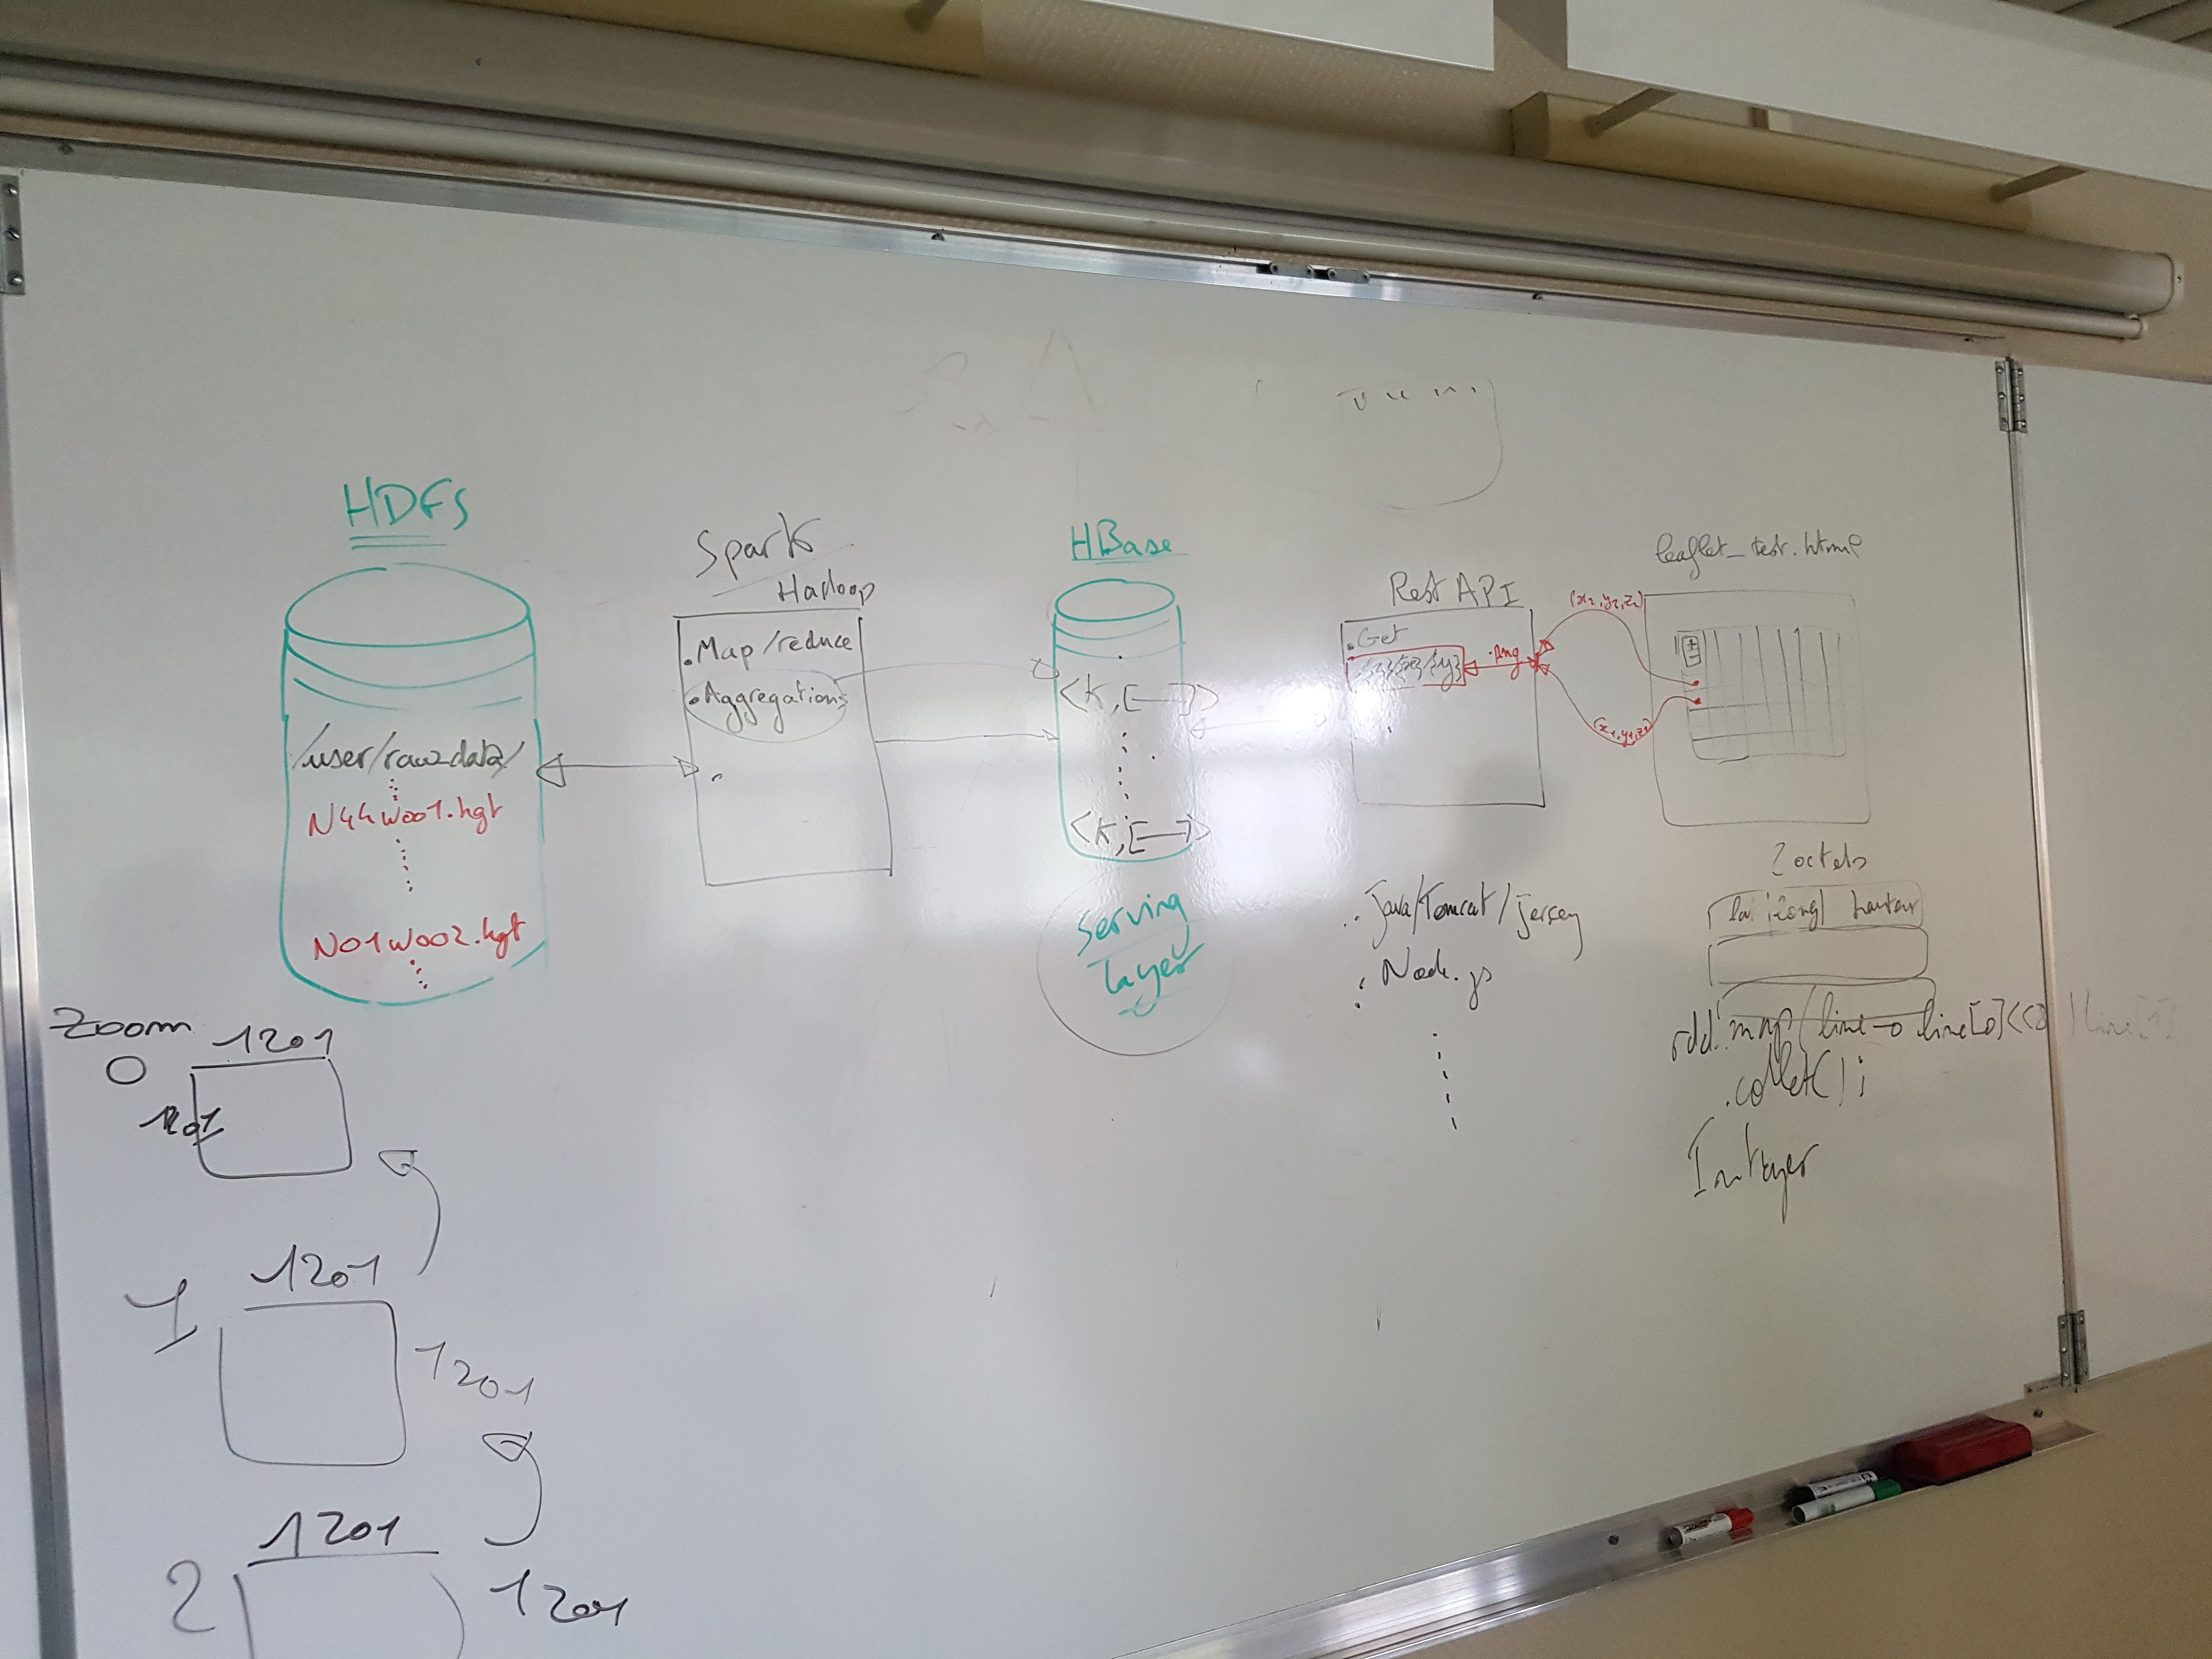 HDFS
/user/raw_data/
N44W001.hgt
N01W002.hgt
Spark
Hadoop
. Map/reduce
. Aggregations
HBase
<K,[ ]>
<K,[ ]>
Serving
layer
Rest API
. Get
/{z}/{x}/{y}
.png
. Java/Tomcat/jersey
. Node.js
leaflet_test.html
(x2,y2,z2)
(x1,y1,z1)
2 octets
lat long hauteur
rdd.map(line → line[0]<<8 | line[1]
.collect();
Integer
Zoom
0
1201
1201
1
1201
1201
2
1201
1201